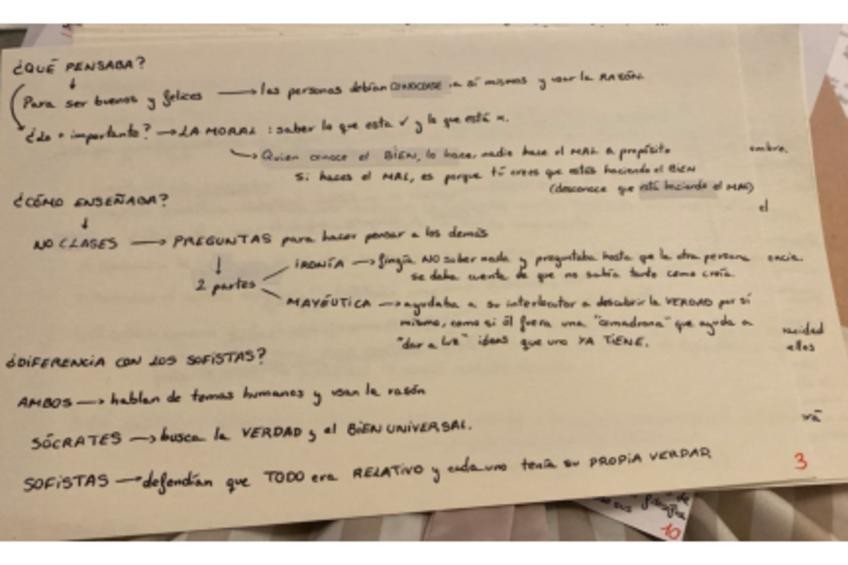 ¿QUÉ PENSABA?
↓
Para ser buenos y felices → las personas debían CONOCERSE a sí mismos y usar la RAZÓN.
¿Lo + importante? → LA MORAL : saber lo que esta ✓ y lo que está x.
→ Quien conoce el BIEN, lo hace, nadie hace el MAL a propósito
Si haces el MAL, es porque tú crees que estás haciendo el BIEN
(desconoce que está haciendo el MAL)
¿CÓMO ENSEÑABA?
↓
NO CLASES → PREGUNTAS para hacer pensar a los demás
↓
2 partes
IRONÍA → fingía NO saber nada y preguntaba hasta que la otra persona
se daba cuenta de que no sabía tanto como creía.
MAYÉUTICA → ayudaba a su interlocutor a descubrir la VERDAD por sí
mismo, como si él fuera una "comadrona" que ayuda a
"dar a luz" ideas que uno YA TIENE.
¿DIFERENCIA CON LOS SOFISTAS?
AMBOS → hablan de temas humanos y usan la razón
SÓCRATES → busca la VERDAD y el BIEN UNIVERSAL.
SOFISTAS → defendían que TODO era RELATIVO y cada uno tenía su PROPIA VERDAD.
3
ombre.
el
encia.
ellos
10